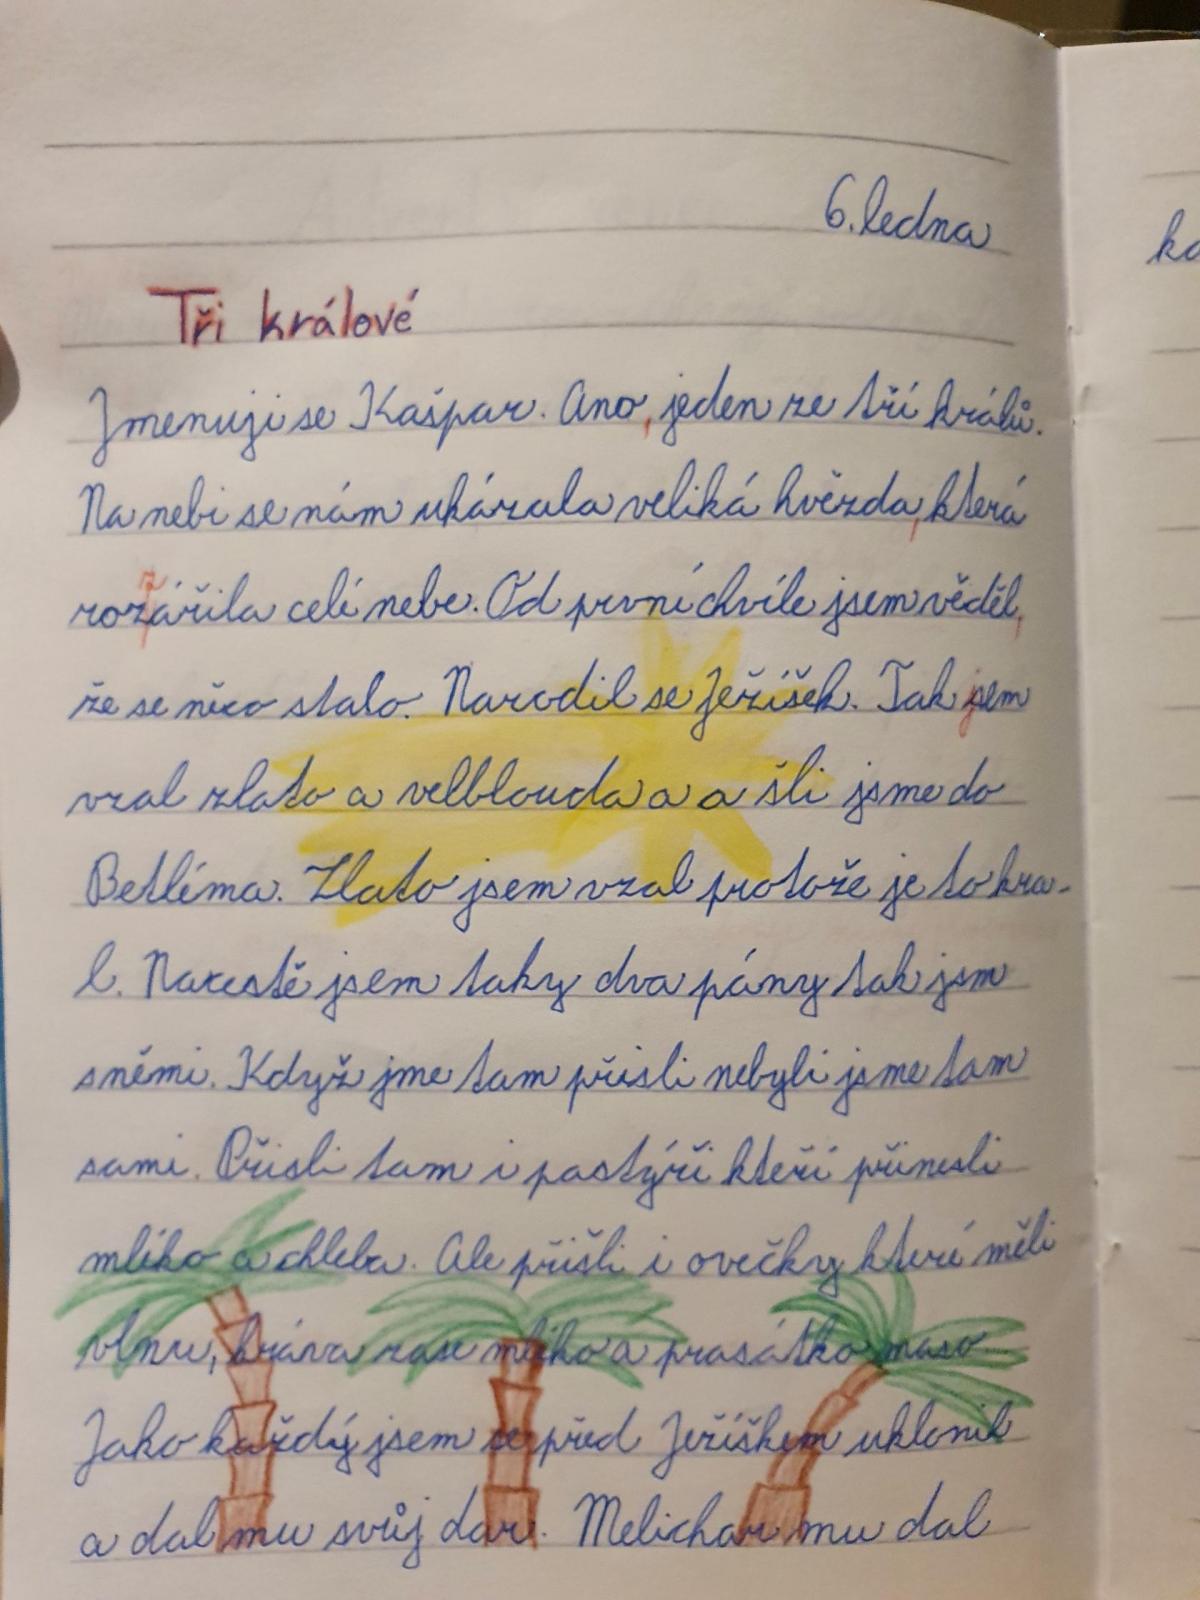 6. ledna
Tři králové
Jmenuji se Kašpar. Ano, jeden ze tří králů.
Na nebi se nám ukázala veliká hvězda, která
rozzářila celí nebe. Od první chvíle jsem věděl,
že se něco stalo. Narodil se Ježíšek. Tak jsem
vzal zlato a velblouda a a šli jsme do
Betléma. Zlato jsem vzal protože je to kra-
l. Na cestě jsem taky dva pány tak jsm
sněmi. Když jme tam přisli nebyli jsme tam
sami. Přisli tam i pastýři kteří přinesli
mlíko a chleba. Ale přišli i ovečky kterí měli
vlnu, kráva zase mlíko a prasátko maso
Jako každý jsem se před Ježíškem uklonil
a dal mu svůj dar. Melichar mu dal